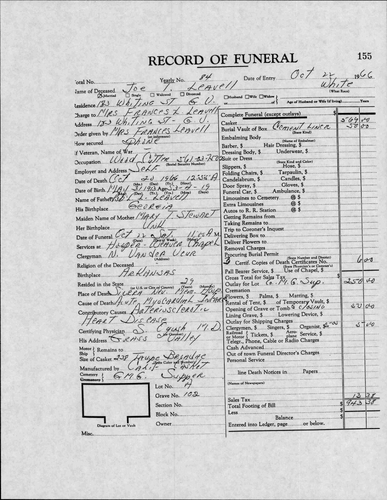 155
RECORD OF FUNERAL
Total No. Yearly No. 84 Date of Entry Oct 24 1966
Name of Deceased Joe Leavell White
Married Single Widowed Divorced Husband Wife Widow Age of Husband or Wife (if living) Years
Residence 183 Whiting St G.V.
Charge to Mrs Frances L Leavell
Address 183 Whiting St - G.V.
Order given by Mrs Frances Leavell
How secured Same
If Veteran, Name of War
Occupation Wood Cutter
Employer and Address Self
Date of Death Oct 20 1966 12:55 A
Date of Birth May
Name of Father Leavell
His Birthplace Georgia
Maiden Name of Mother Mary T. Stewart
Her Birthplace Unk
Date of Funeral Oct 22 Sat. 11 A.M.
Services at Hooper-Weaver Chapel
Clergyman N. Vander Veur
Religion of the Deceased
Birthplace Arkansas
Resided in the State 29
Place of Death Sierra Nev. Mem. Hosp
Cause of Death Acute Myocardial Infarct
Contributory Causes Arteriosclerotic
Heart Disease
Certifying Physician S. Crush M.D.
His Address Grass Valley
Motor Ship Remains to
Size of Casket Taupe Brocade
Manufactured by Calif Casket
Cemetery Crematory G.M.G. Supper
Lot No. A
Grave No. 102
Section No.
Block No.
Owner
Diagram of Lot or Vault
Misc.
Complete Funeral (except outlays) $
Casket
Burial Vault of Box Cement Liner 50 00
(State Kind)
Embalming Body
(Name of Embalmer)
Barber, $ Hair Dressing, $
Dressing Body, $ Underwear, $
Suit or Dress
(State Kind and Color)
Slippers, $ Hose, $
Folding Chairs, $ Tarpaulin, $
Candelabrum, $ Candles, $
Door Spray, $ Gloves, $
Funeral Car, $ Ambulance, $
Limousines to Cemetery @ $
Extra Limousines @ $
Autos to R. R. Station @ $
Getting Remains from
Taking Remains to
Trip to Coroner's Inquest
Delivering Box to
Deliver Flowers to
Removal Charges
Procuring Burial Permit
(State Number and District)
3 Certif. Copies of Death Certificates No. 6 00
Pall Bearer Service, $ Use of Chapel, $
Gross Total for Sales Tax $
Outlay for Lot G. M. G. Sup 250 00
Cremation
Flowers, $ Palms, $ Matting, $
Rental of Tent, $ of Temporary Vault, $
Opening of Grave or Tomb & Closing
Lining Grass, $ Lowering Device, $
Outlay for Shipping Charges
Clergymen, $ Singers, $ Organist, $ 5 00
Railroad Motor Tickets, $ Aero Service, $
Telegr., Phone, Cable or Radio Charges
Cash Advanced
Out of town Funeral Director's Charges
Personal Service
line Death Notices in Papers
(Names of Newspapers)
Sales Tax
Total Footing of Bill $
Less
Balance $
Entered into Ledger, page or below,